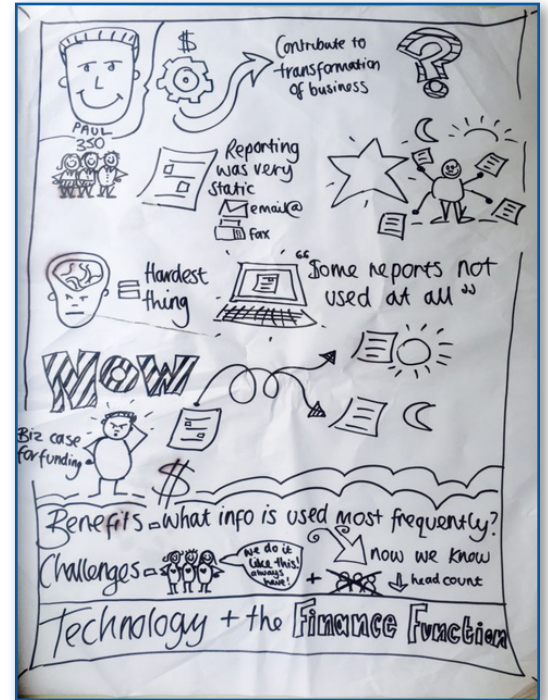 $
Contribute to
transformation
of business
PAUL
350
Reporting
was very
static
email@
fax
= Hardest
thing
“Some reports not
used at all”
NOW
Biz case
for funding
$
Benefits = what info is used most frequently?
now we know
Challenges =
we do it
like this!
always
have!
+
head count
Technology + the Finance Function